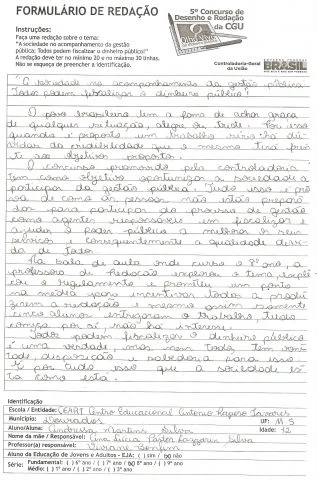 FORMULÁRIO DE REDAÇÃO
5º Concurso de
Desenho e Redação
da CGU
Instruções:
Faça uma redação sobre o tema:
"A sociedade no acompanhamento da gestão
pública: Todos podem fiscalizar o dinheiro público!"
A redação deve ter no mínimo 20 e no máximo 30 linhas.
Não se esqueça de preencher a identificação.
Controladoria-Geral
da União
BRASIL
"A sociedade no acompanhamento da gestão pública:
Todos podem fiscalizar o dinheiro público"!
O povo brasileiro tem a fama de achar graça
de qualquer situação, alegre ou triste. Por isso
quando é proposto um trabalho sério há du-
vidar da credibilidade que o mesmo terá fren
te ao objetivo proposto.
O concurso promovido pela controladoria
tem como objetivo oportunizar a sociedade a
participar da gestão pública. Tudo isso é pro
va de como as pessoas não estão prepara
das para participar do processo de gestão
como agentes responsáveis em fiscalizar e
ajudar o poder público a melhorar os seus
serviços e consequentemente a qualidade de vi
da de todos.
Na sala de aula onde curso o 8º ano, a
professora de Redação explicou o tema, expli
cou o regulamento e prometeu um ponto
na média para incentivar todos a parti
ciparem a redação e mesmo assim somente
cinco alunos entregaram o trabalho, tudo
começa por aí, não há interesse.
Todos podem fiscalizar o dinheiro público
é uma verdade, mas nem todos têm von
tade, disposição e sabedoria para isso.
É por tudo isso que a sociedade es
tá como está.
Identificação
Escola / Entidade: CEART Centro Educacional Antonio Raposo Tavares
Município: Dourados UF: MS
Aluno/Aluna: Andressa Martins Silva Idade: 12
Nome da mãe / Responsável: Ana Lúcia Pastor Lazzarin Silva
Professor(a) Responsável: Viviane Bonfim
Aluno da Educação de Jovens e Adultos - EJA: ( ) sim (x) não
Série: Fundamental: ( ) 6º ano / ( ) 7º ano / (x) 8º ano / ( ) 9º ano
Médio: ( ) 1º ano / ( ) 2º ano / ( ) 3º ano